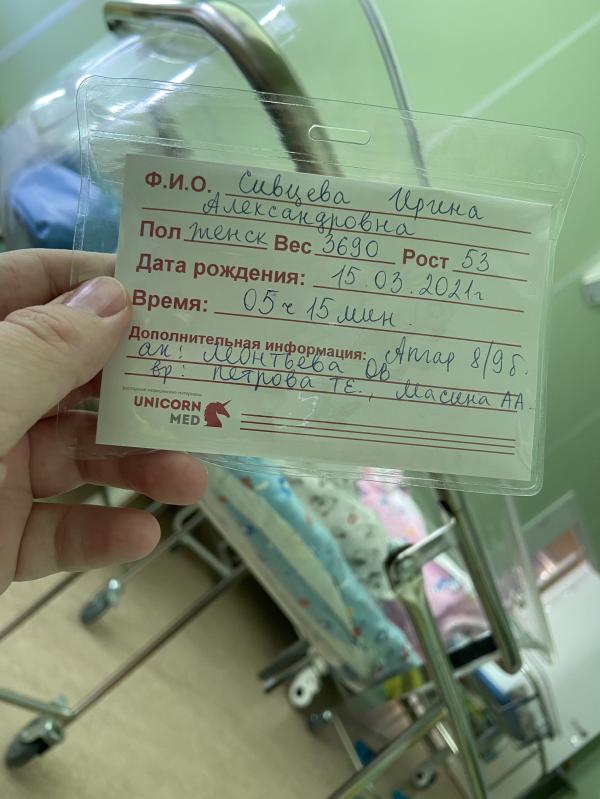 Ф.И.О. Сивцева Ирина
Александровна
Пол женск Вес 3690 Рост 53
Дата рождения: 15.03.2021г
Время: 05ч 15 мин.
Дополнительная информация: Апгар 8/9б.
ак: Леонтьева ОВ
вр: Петрова ТЕ., Масина АА.
расходные медицинские материалы
UNICORN
MED